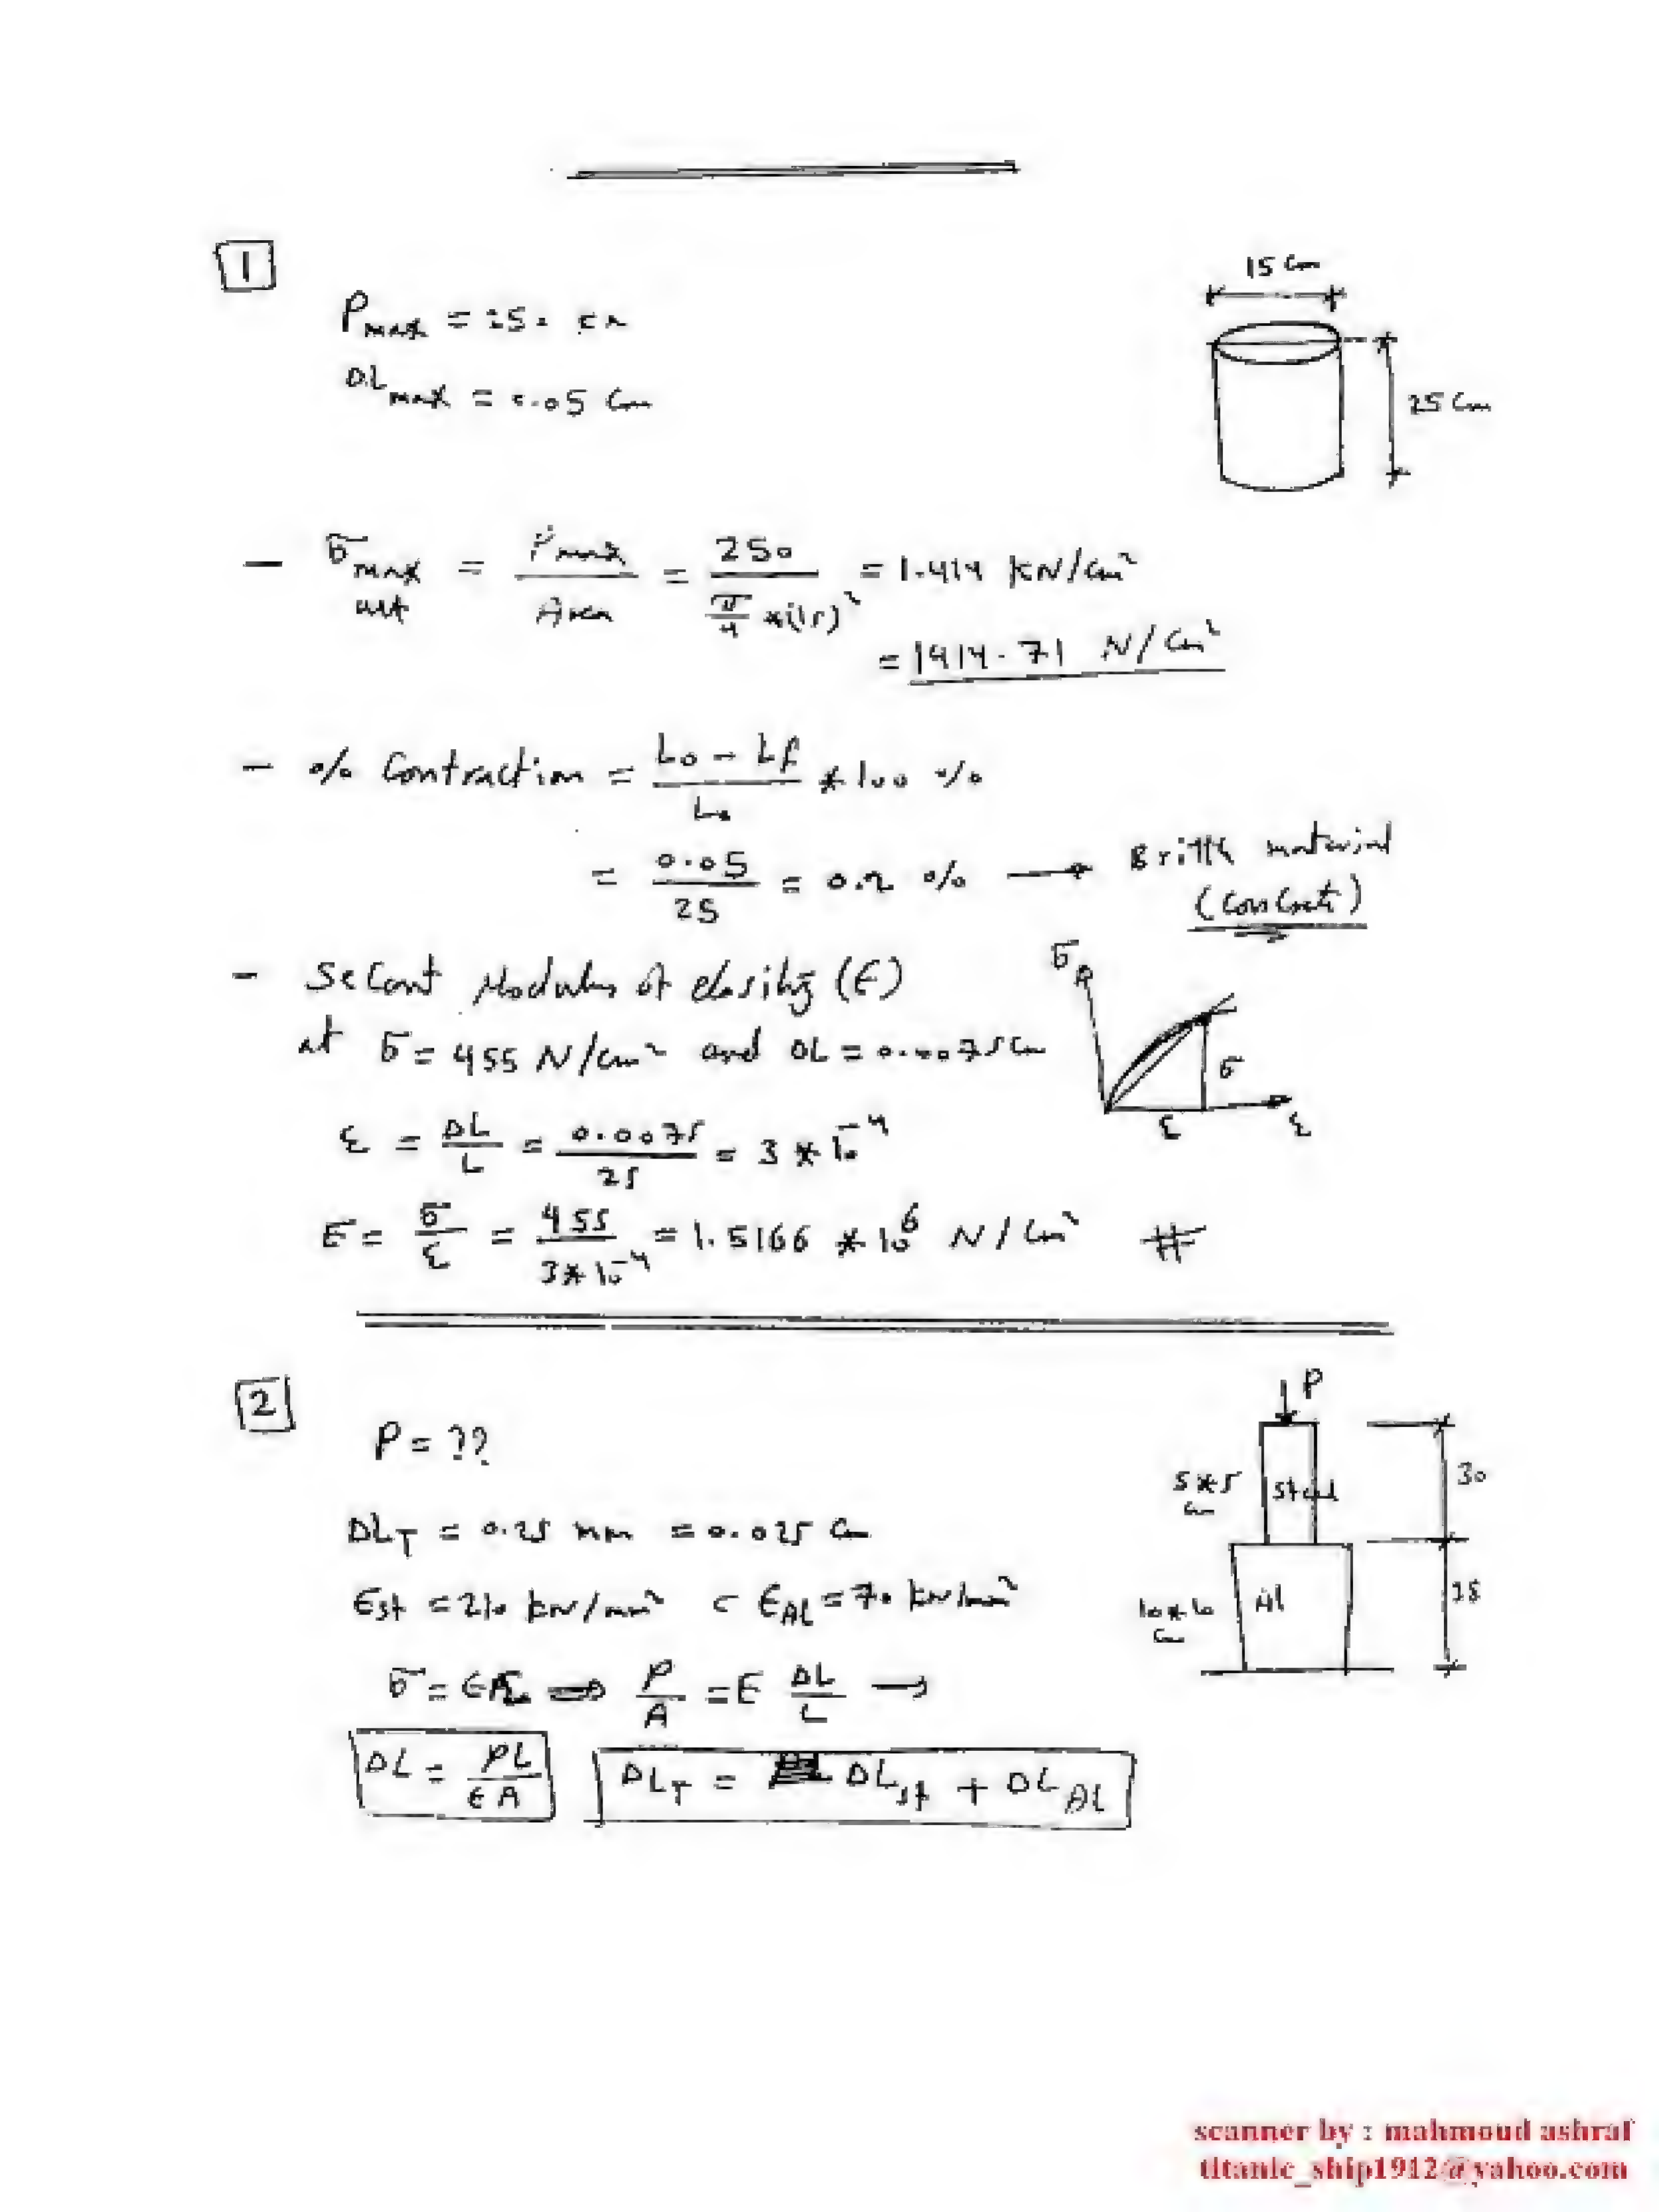 1
15 cm
Pmax = 250 kN
ΔLmax = 0.05 cm
25 cm
- σmax ult = Pmax / Area = 250 / (π/4 *(15)²) = 1.414 KN/cm²
= 1414.71 N/cm²
- % Contraction = (Lo - Lf) / Lo * 100 %
= 0.05 / 25 = 0.2 % → Brittle material
(Concrete)
- Secant Modulus of elasity (E)
σ
at σ = 455 N/cm² and ΔL = 0.0075 cm
σ
ε = ΔL / L = 0.0075 / 25 = 3 * 10⁻⁴
ε ε
E = σ / ε = 455 / (3*10⁻⁴) = 1.5166 * 10⁶ N/cm² #
2
P
P = ??
5*5 cm steel 30
ΔLT = 0.25 mm = 0.025 cm
Est = 210 kN/mm² c EAL = 70 kN/mm²
10*10 cm Al
σ = Eε ⇒ P / A = E ΔL / L →
ΔL = PL / EA ΔLT = ΔLst + ΔLAL
scanner by : mahmoud ashraf
titanic_ship1912@yahoo.com